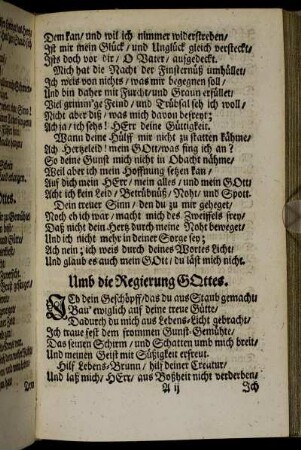 Dem kan/ und wil ich nimmer widerstreben/
Ist mir mein Glück/ und Unglück gleich versteckt/
Ists doch vor dir/ O Vater/ aufgedeckt.
Mich hat die Nacht der Finsternüß umhüllet/
Ich weis von nichts/ was mir begegnen soll/
Und bin daher mit Furcht/und Graun erfüllet/
Viel grimm'ge Feind/ und Trübsal seh ich woll/
Nicht aber diß/ was mich davon befreyt;
Ach ja/ ich sehs! HErr deine Gütigkeit.
Wann deine Hülff mir nicht zu statten kähme/
Ach Hertzeleid! mein GOtt/was fing ich an?
So deine Gunst mich nicht in Obacht nähme/
Weil aber ich mein Hoffnung setzen kan/
Auf dich mein HErr/ mein alles/ und mein GOtt/
Acht ich kein Leid/ Betrübnüß/ Noht/ und Spott.
Dein treuer Sinn/ den du zu mir geheget/
Noch eh ich war/ macht mich des Zweiffels frey/
Daß nicht dein Hertz durch meine Noht beweget/
Und ich nicht mehr in deiner Sorge sey;
Ach nein; ich weis durch deines Wortes Licht/
Und glaub es auch mein GOtt/ du läst mich nicht.
Umb die Regierung GOttes.
ICh dein Geschöpff/das du aus Staub gemacht/
Bau' ewiglich auf deine treue Gütte/
Dadurch du mich aus Lebens-Licht gebracht/
Ich traue fest dem frommen Gunst-Gemühte/
Das seinen Schirm/ und Schatten umb mich breit/
Und meinen Geist mit Süßigkeit erfreut.
Hilf Lebens-Brunn/ hilf deiner Creatur/
Und laß mich/ HErr/ aus Boßheit nicht verderben/
A ij Ich